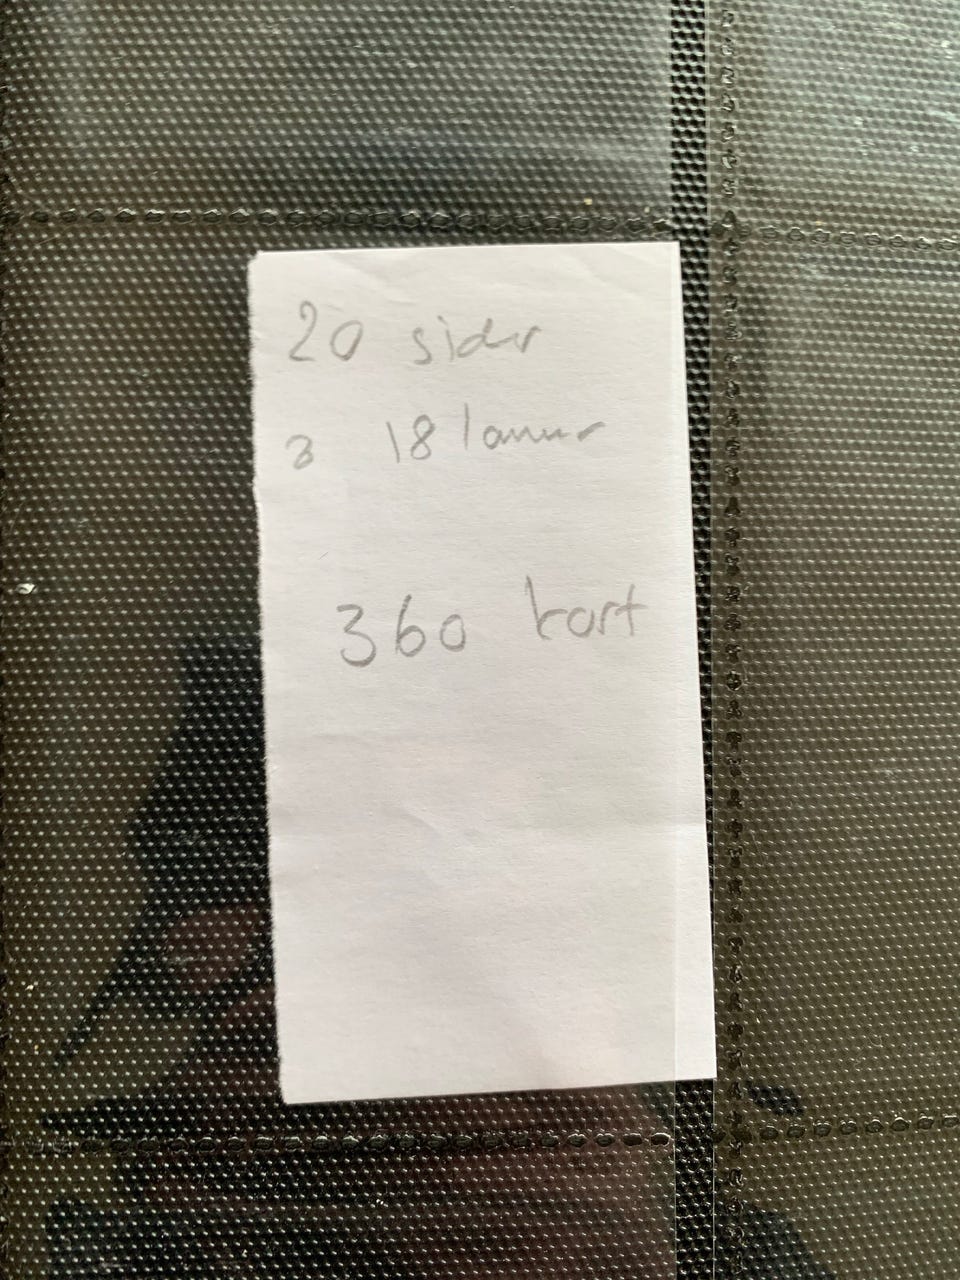 20 sider
a 18 lommer
360 kort